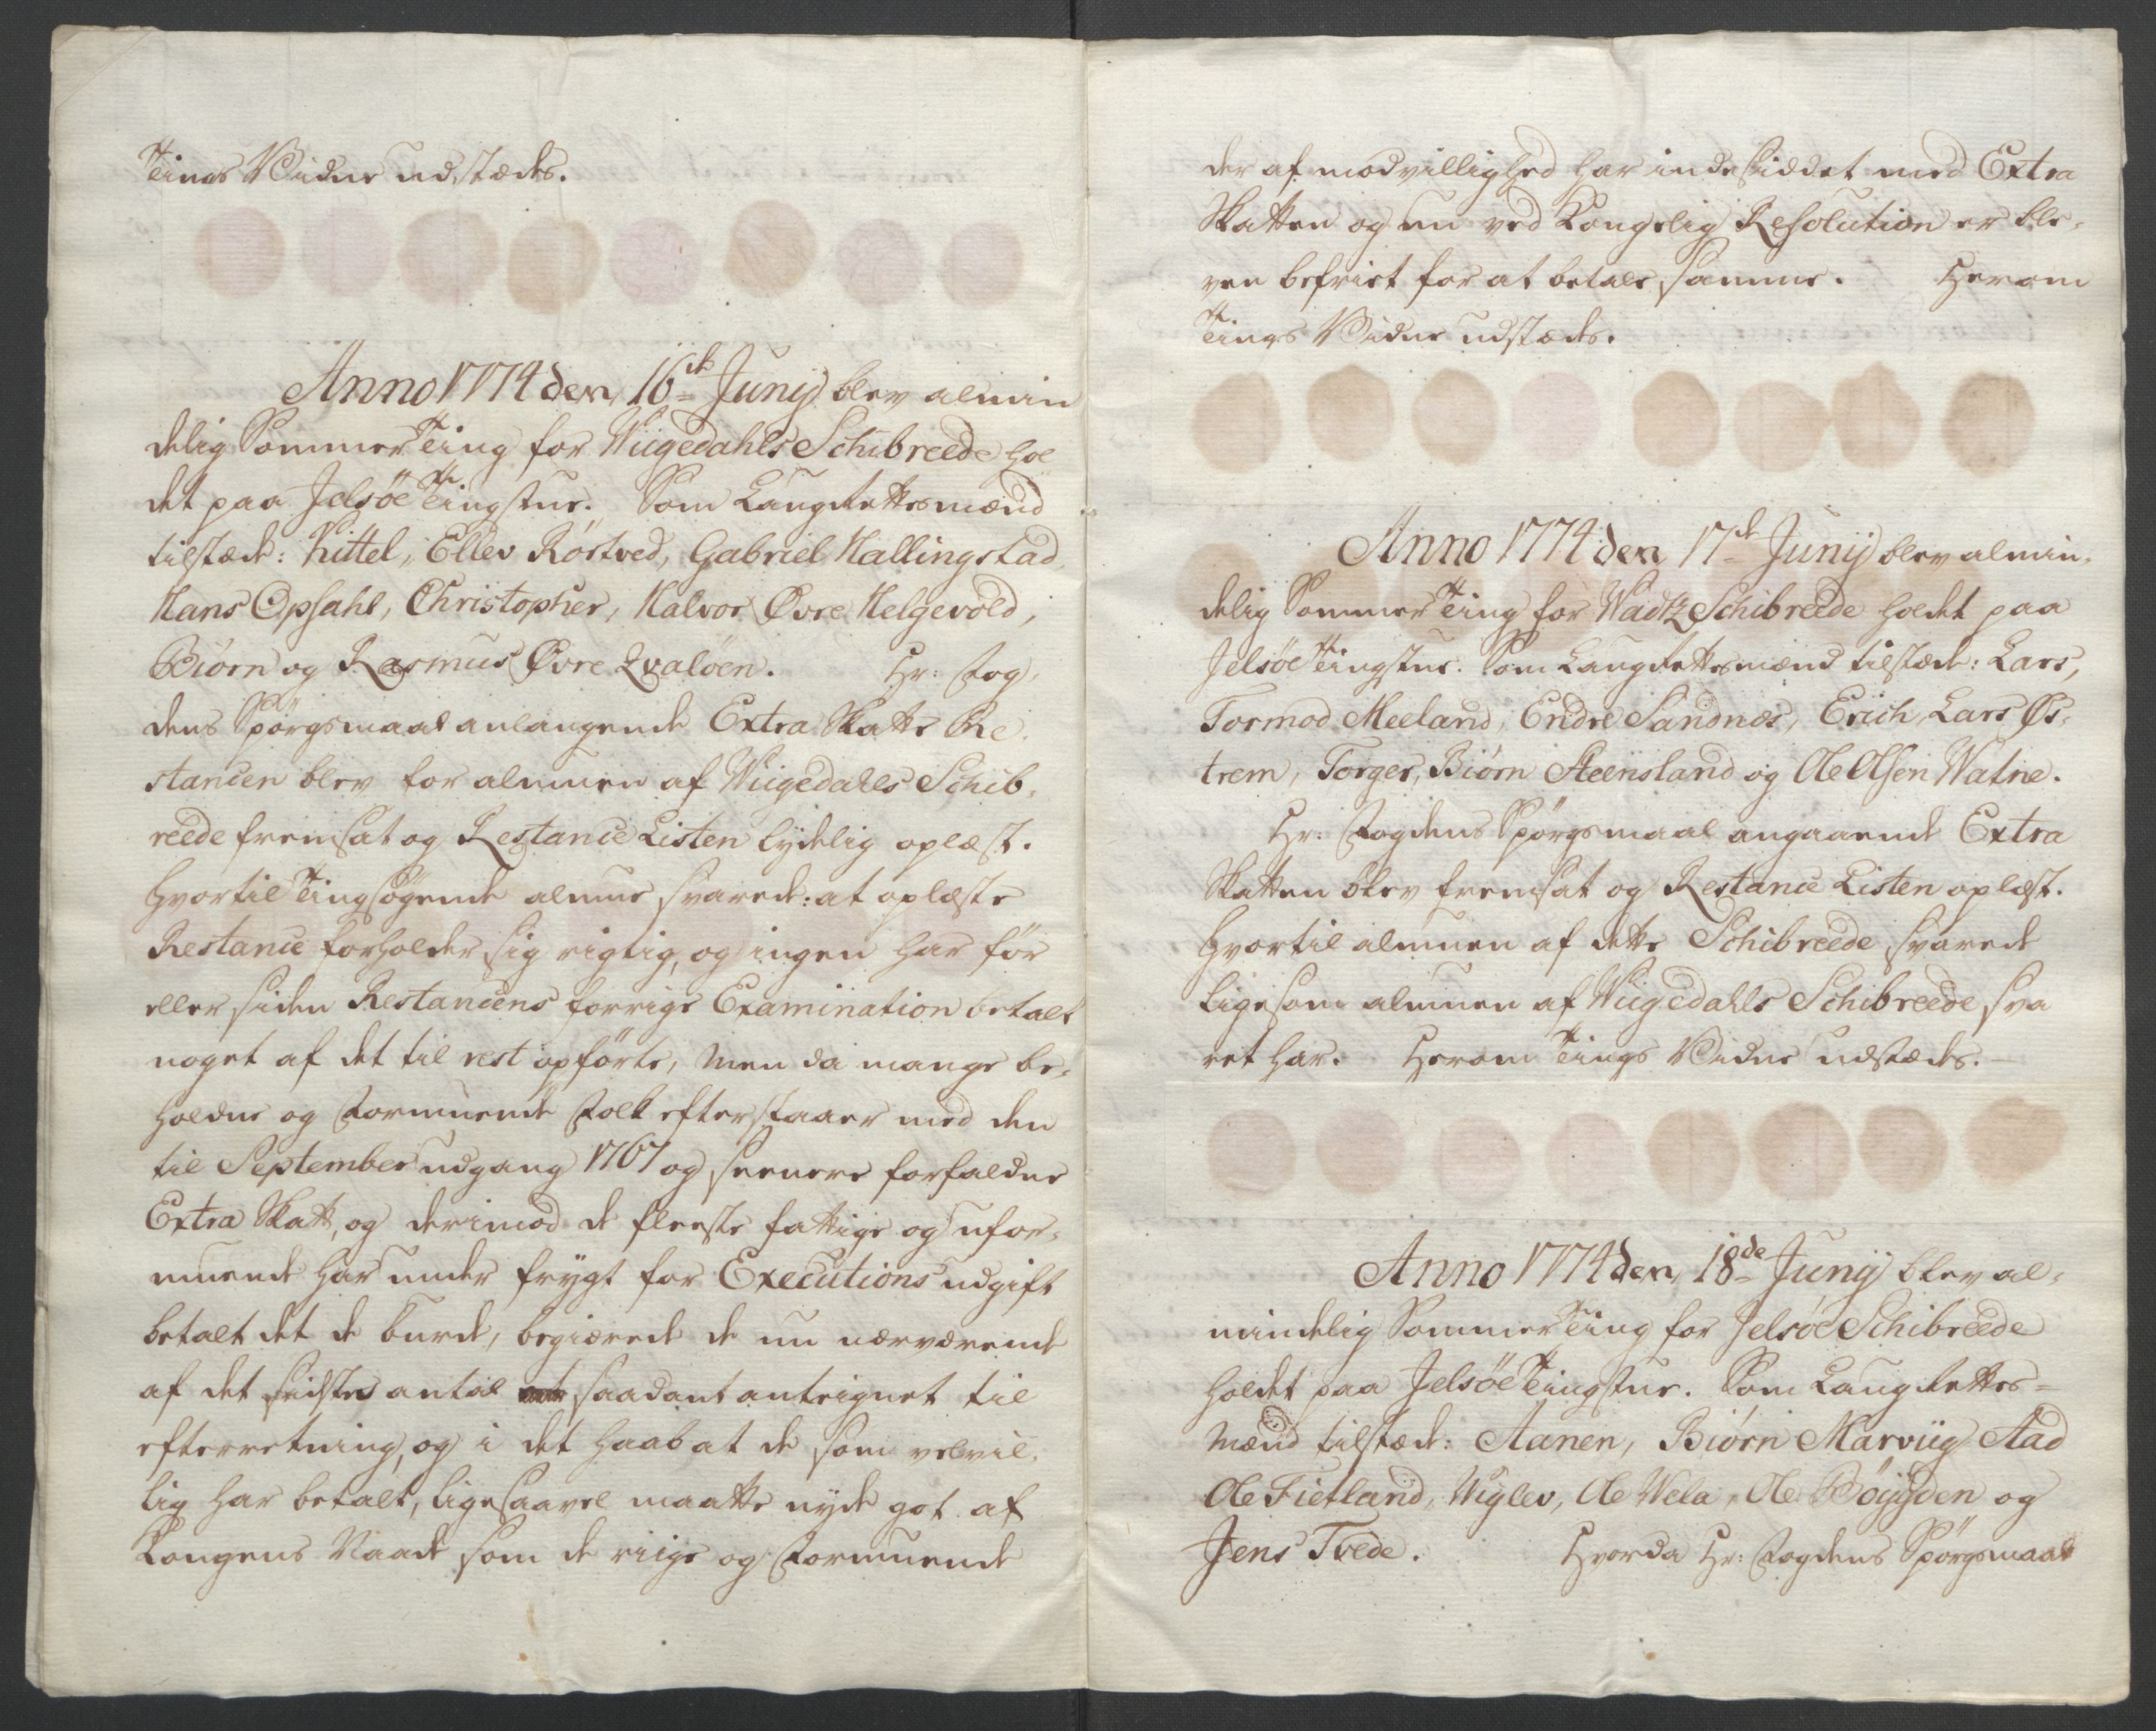 Tings Vidne udstædes.
Anno 1774 den 16de Junij blev almin
delig Sommer Ting for Wiigedahls Schibreede hol
det paa Jelsöe Tingstue. Som Laugrettesmænd
tilstæde: Kittel, Ellev Röstved, Gabriel Hallingstad,
Hans Opsahl, Christopher, Halvor Øvre Helgevold,
Biörn og Rasmus Øvre Qvalöen. Hr: Fog-
dens Spörgsmaal anlangende Extra Skatte Re-
stancen blev for almuen af Wiigedahls Schib-
reede fremsat og Restance Listen lydelig oplæst.
Hvortil Tingsögende almue svarede: at oplæste
Restance forholder sig rigtig, og ingen har för
eller siden Restancens forrige Examination betalt
noget af det til rest opförte, men da mange be-
holdne og Formuende Folk efterstaaer med den
til September udgang 1767 og seenere forfaldne
Extra Skatt, og derimod de fleeste fattige og ufor-
muende har under frygt for Executions udgift
betalt det de burde, begiærede de nu nærværende
af det sidste antal saadant anteignet til
efterretning, og i det Haab at de som velvil-
lig har betalt, ligesaavel maatte nyde got af
Kongens Naade som de riige og Formuende
der af modvillighed har indesiddet med Extra
Skatten og nu ved Kongelig Resolution er ble-
ven befriet for at betale samme. Herom
Tings Vidne udstædes.
Anno 1774 den 17de Junij blev almin-
delig Sommer Ting for Wadtz Schibreede holdet paa
Jelsöe Tingstue. Som Laugrettesmænd tilstæde: Lars,
Tormod Meeland, Endre Sandnæs, Erich, Lars Øs-
trem, Torger, Biörn Steensland og Ole Olsen Watne.
Hr: Fogdens Spörgsmaal angaaende Extra
Skatten blev fremsat og Restance Listen oplæst.
Hvortil almuen af dette Schibreede svarede
ligesom almuen af Wiigedahls Schibreede sva
ret har. Herom Tings Vidne udstædes.
Anno 1774 den 18de Junij blev al-
mindelig Sommer Ting for Jelsöe Schibreede
holdet paa Jelsöe Tingstue. Som Laugrettes-
mænd tilstæde: Aanen, Biörn Marviig, Aad
Ole Fietland, Wiglev, Ole Wela, Ole Böygden og
Jens Tvede. Hvorda Hr: Fogdens Spörgsmaal